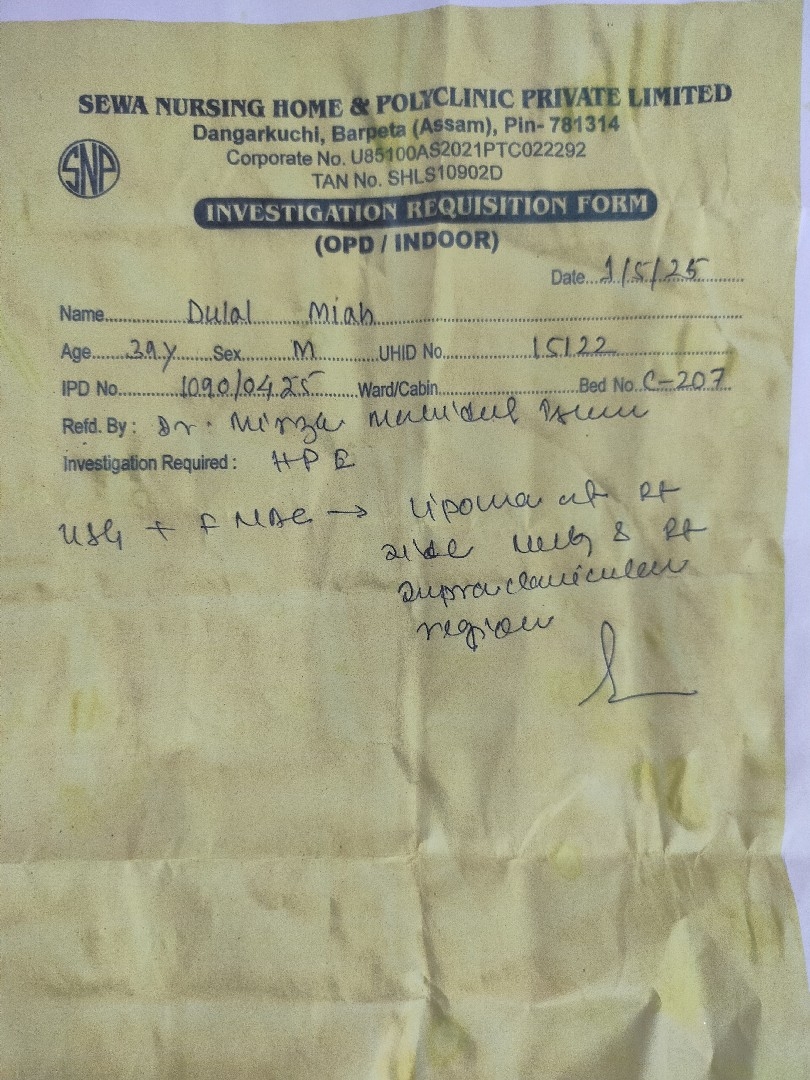 SEWA NURSING HOME & POLYCLINIC PRIVATE LIMITED
Dangarkuchi, Barpeta (Assam), Pin- 781314
Corporate No. U85100AS2021PTC022292
SNP
TAN No. SHLS10902D
INVESTIGATION REQUISITION FORM
(OPD / INDOOR)
Date...1/5/25
Name...Dulal Miah
Age...39y...Sex...M...UHID No...15122
IPD No...1090/04.25...Ward/Cabin...Bed No. C-207
Refd. By : Dr. Mirza
Investigation Required : HPE
USG + FNAC → Lipoma at Rt
side & Rt
supraclavicular
region